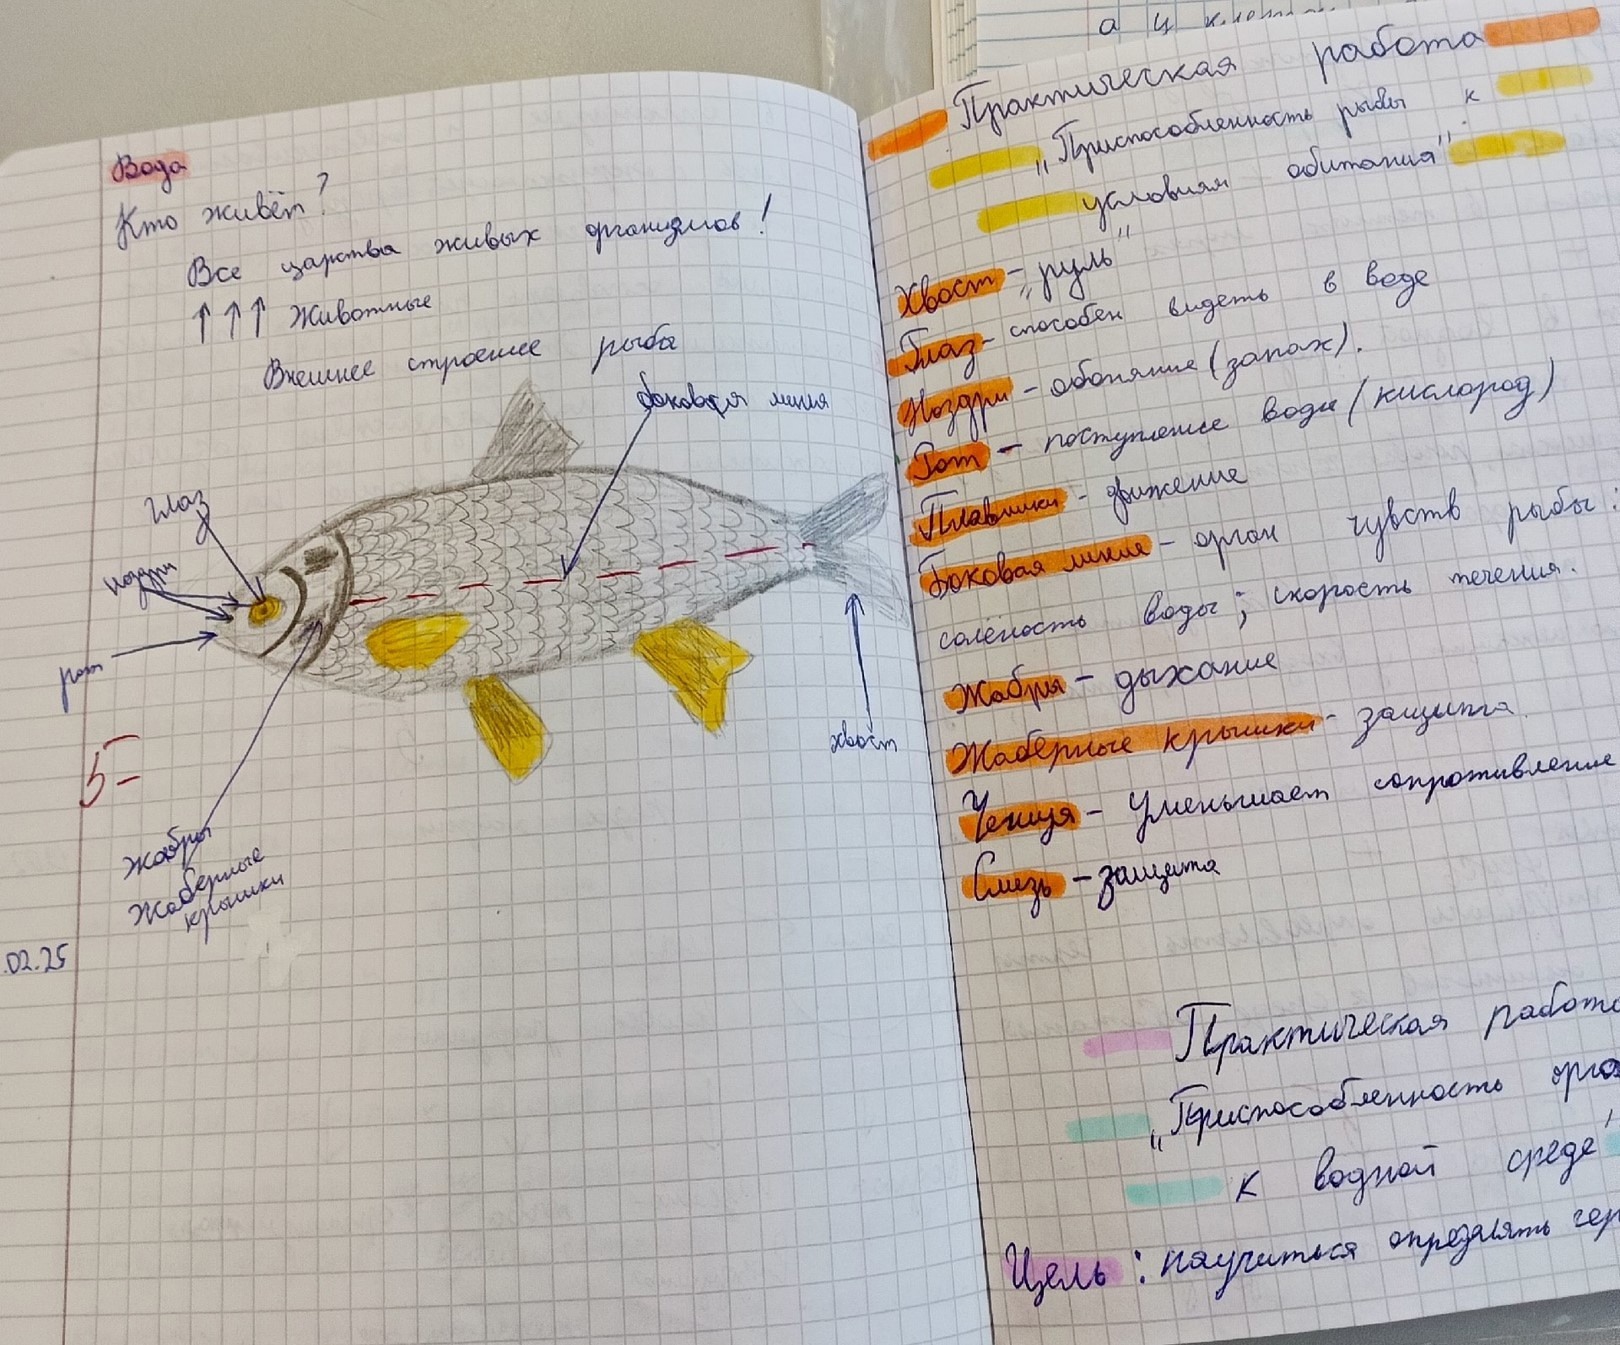 Вода
Кто живёт?
Все царства живых организмов!
↑↑↑ Животные
Внешнее строение рыба
боковая линия
глаз
ноздри
рот
хвост
5-
Жабры
Жаберные
крышки
.02.25
Практическая работа
„Приспособленность рыбы к
условиям обитания"
Хвост - „руль"
Глаз - способен видеть в воде
Ноздри - обоняние (запах).
Рот - поступление воды (кислород)
Плавники - движение
Боковая линия - орган чувств рыбы:
соленость воды; скорость течения.
Жабры - дыхание
Жаберные крышки - защита.
Чешуя - уменьшает сопротивление
Слизь - защита
Практическая работа
„Приспособленность орга
к водной среде"
Цель: научиться определять чер